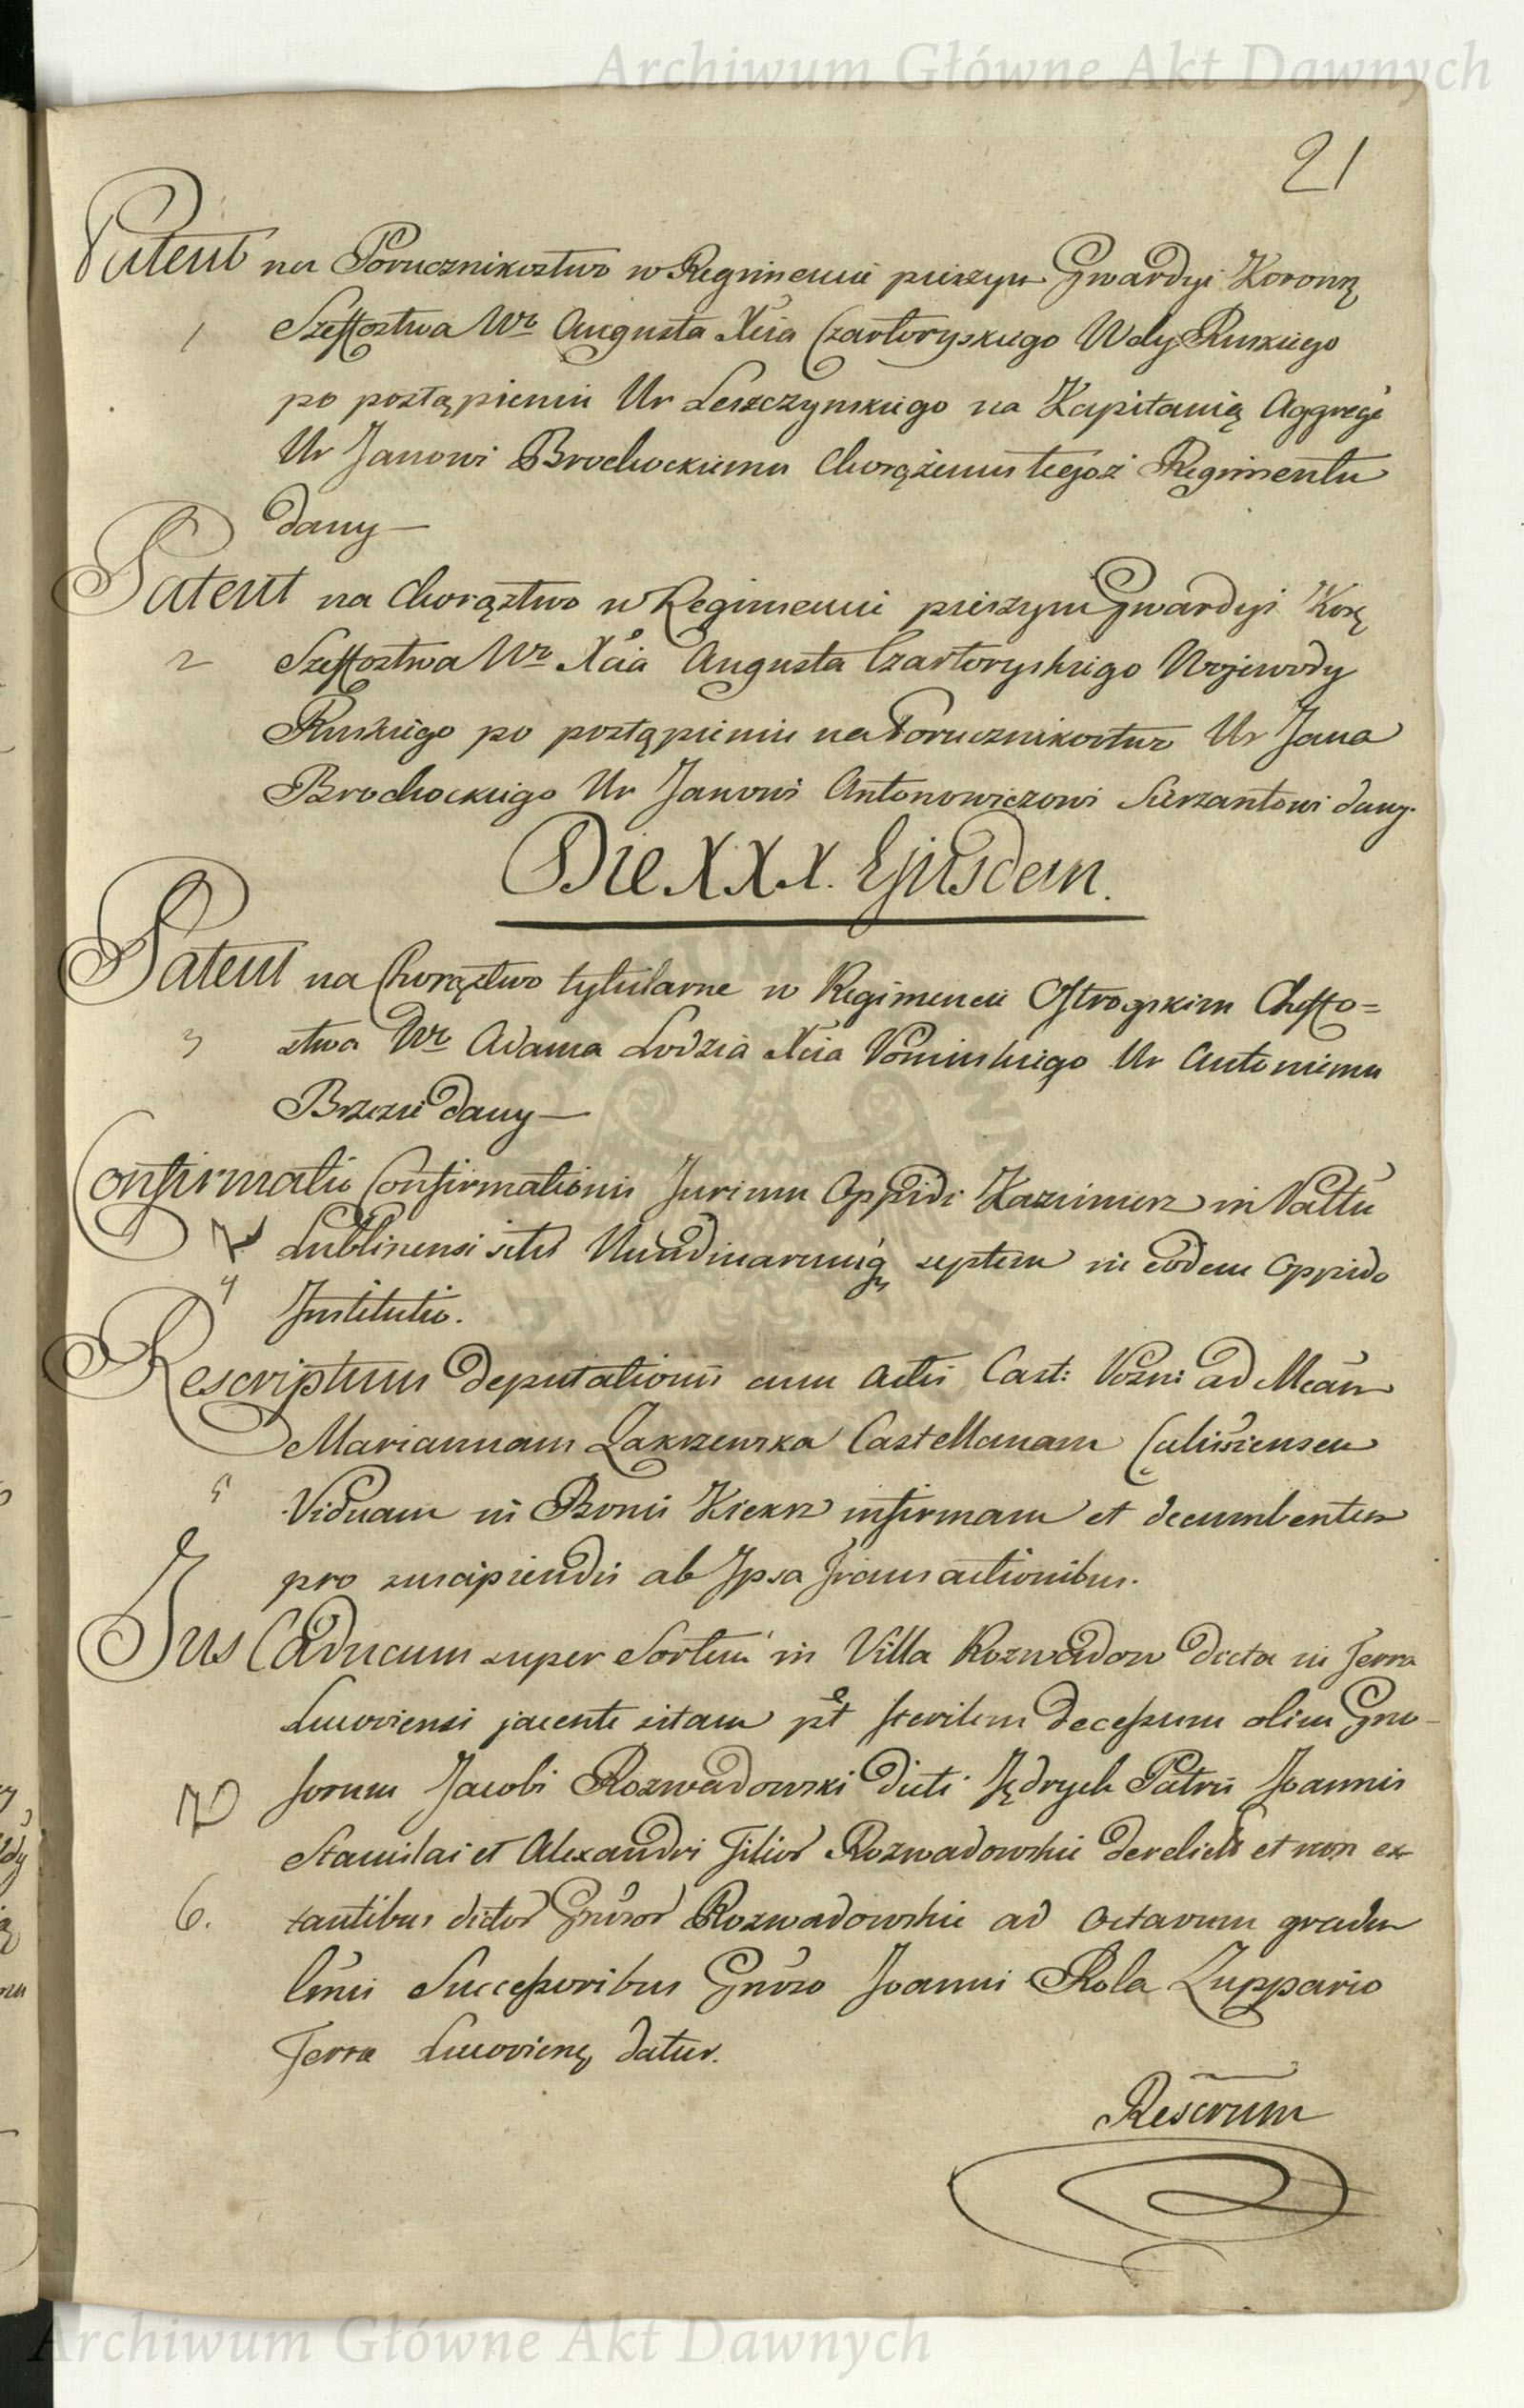 Archiwum Główne Akt Dawnych
21
Patent na Porucznikostwo w Regimencie pieszym Gwardyi Koronną
1 Szeffostwa Wr Augusta Xcia Czartoryskiego Wdy Ruskiego
po postąpieniu Ur Leszczynskiego na Kapitanią Aggreg̃
Ur Janowi Brochockiemu Chorążemu tegoż Regimentu
dany —
Patent na Chorąztwo w Regimencie pieszym Gwardyi Korą
2 Szeffostwa Wr Xcia Augusta Czartoryskiego Wojewody
Ruskiego po postąpieniu na Porucznikostwo Ur Jana
Brochockiego Ur Janowi Antonowiczowi Sierzantowi dany.
Die XXX. Ejusdem.
Patent na Chorąztwo tytularne w Regimencie Ostrogskim Cheffo=
3 stwa Wr Adama Lodzia Xcia Ponińskiego Ur Antoniemu
Brzezie dany —
Confirmatio Confirmationis Jurium Oppidi Kazimierz in Pałłu
Lublinensi siti Nundinarumq septem in eodem Oppido
4 Institutio.
Rescriptum Deputationis cum Actis Cast: Posn: ad Mcam
Mariannam Zakrzewska Castellanam Calissiensem
5 Viduam in Bonis Kiekrz infirmam et decumbentem
pro suscipiendis ab Ipsa Transactionibus.
Jus Caducum super Sortem in Villa Rozwadow dicta in Terra
Leuoviensi jacente sitam pt sterilem decessum olim Gnro-
sorum Jacobi Rozwadowski dicti Jędrych Patris Joannis
Stanislai et Alexandri Filior Rozwadowskie derelict et non ex-
6. tantibus dictor Gnrosor Rozwadowskie ad octavum gradum
lineis Successoribus Gnroso Joanni Rola Zuppario
Terra Leuovieną datur.
Rescrum
Archiwum Główne Akt Dawnych